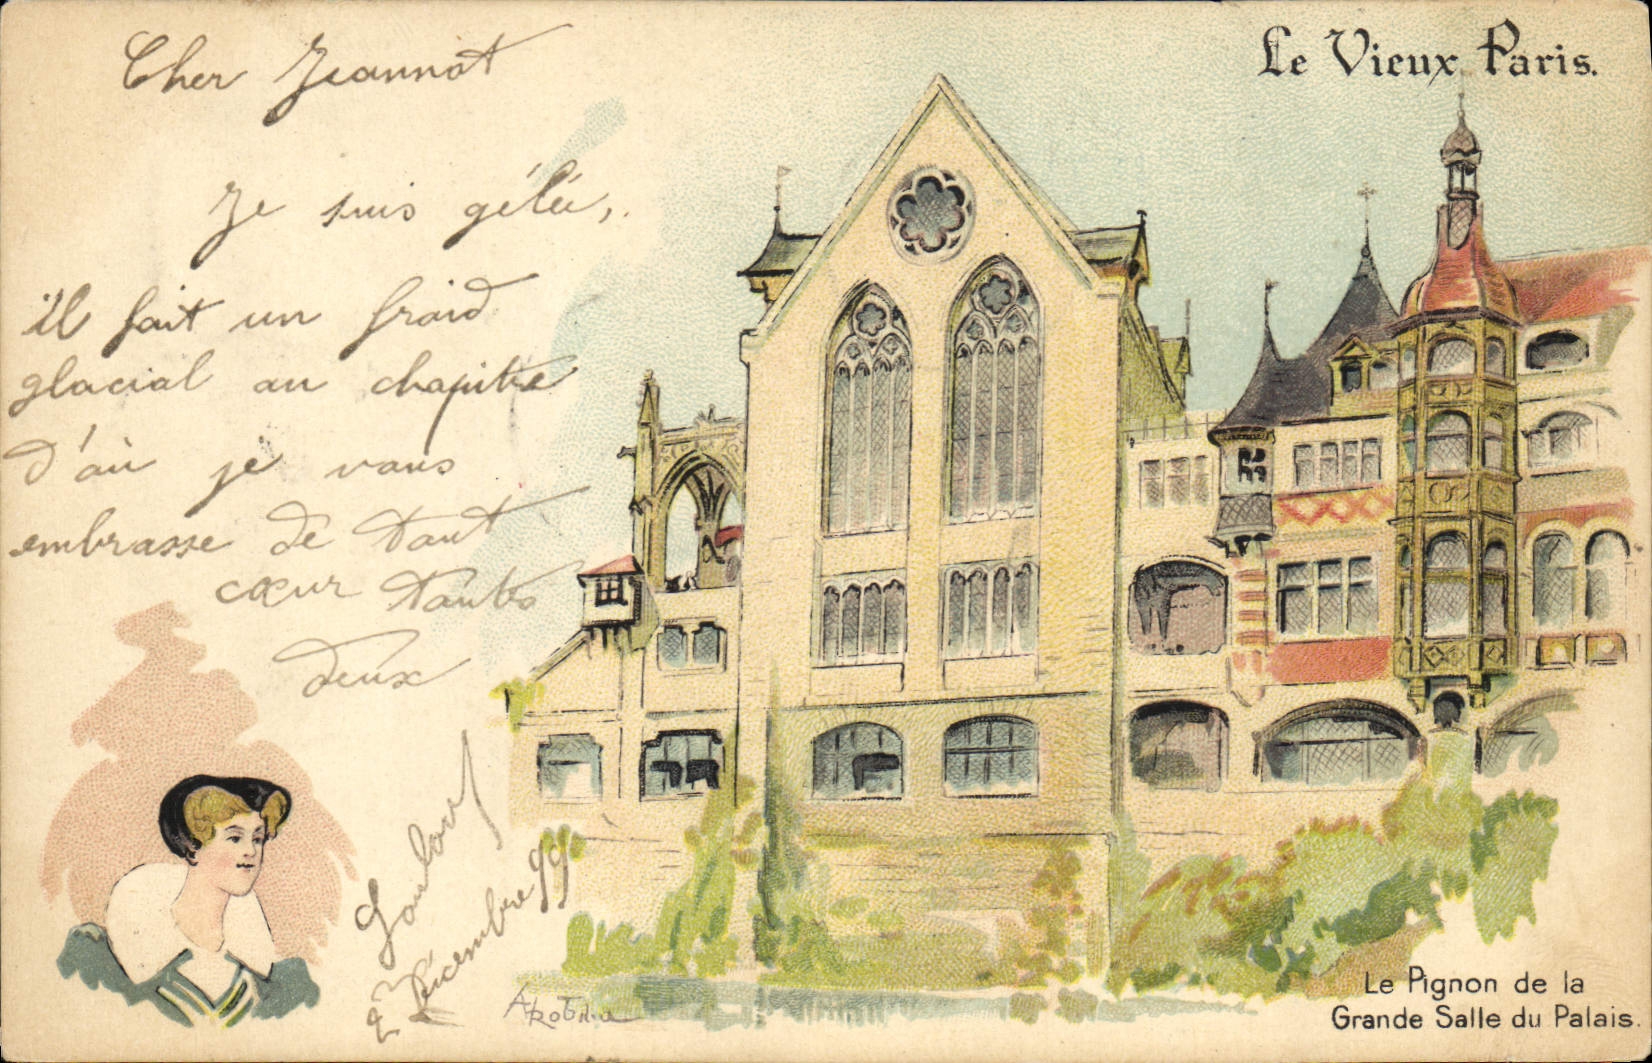 Le Vieux Paris.
Cher Jeannot
Je suis gélée,
il fait un froid
glacial au chapitre
d'où je vous
embrasse de tout
cœur toutes
deux
Loulou
2 Décembre 99
A. Robida
Le Pignon de la
Grande Salle du Palais.